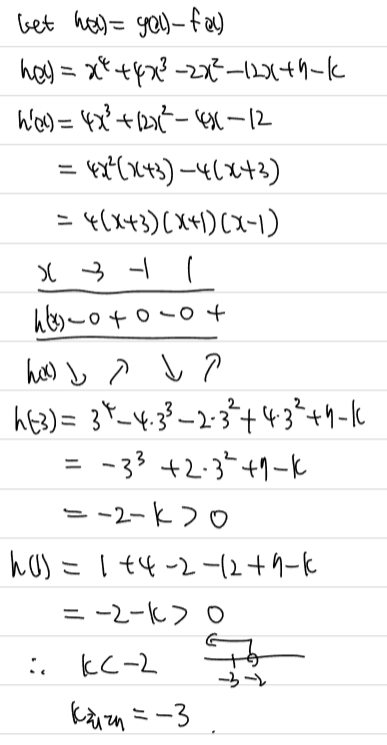 Let h(x) = g(x) - f(x)
h(x) = x⁴ + 4x³ - 2x² - 12x + 7 - k
h'(x) = 4x³ + 12x² - 4x - 12
= 4x²(x+3) - 4(x+3)
= 4(x+3)(x+1)(x-1)
x -3 -1 1
h'(x) - 0 + 0 - 0 +
h(x) ↘ ↗ ↘ ↗
h(-3) = 3⁴ - 4·3³ - 2·3² + 4·3² + 7 - k
= -3³ + 2·3² + 7 - k
= -2 - k > 0
h(1) = 1 + 4 - 2 - 12 + 7 - k
= -2 - k > 0
∴ k < -2
-3 -2
k = -3